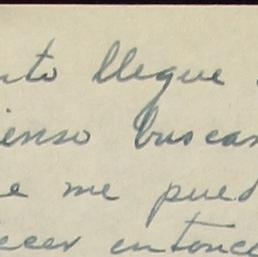 nto llegue
ienso buscar
e me pued
ecer entonce